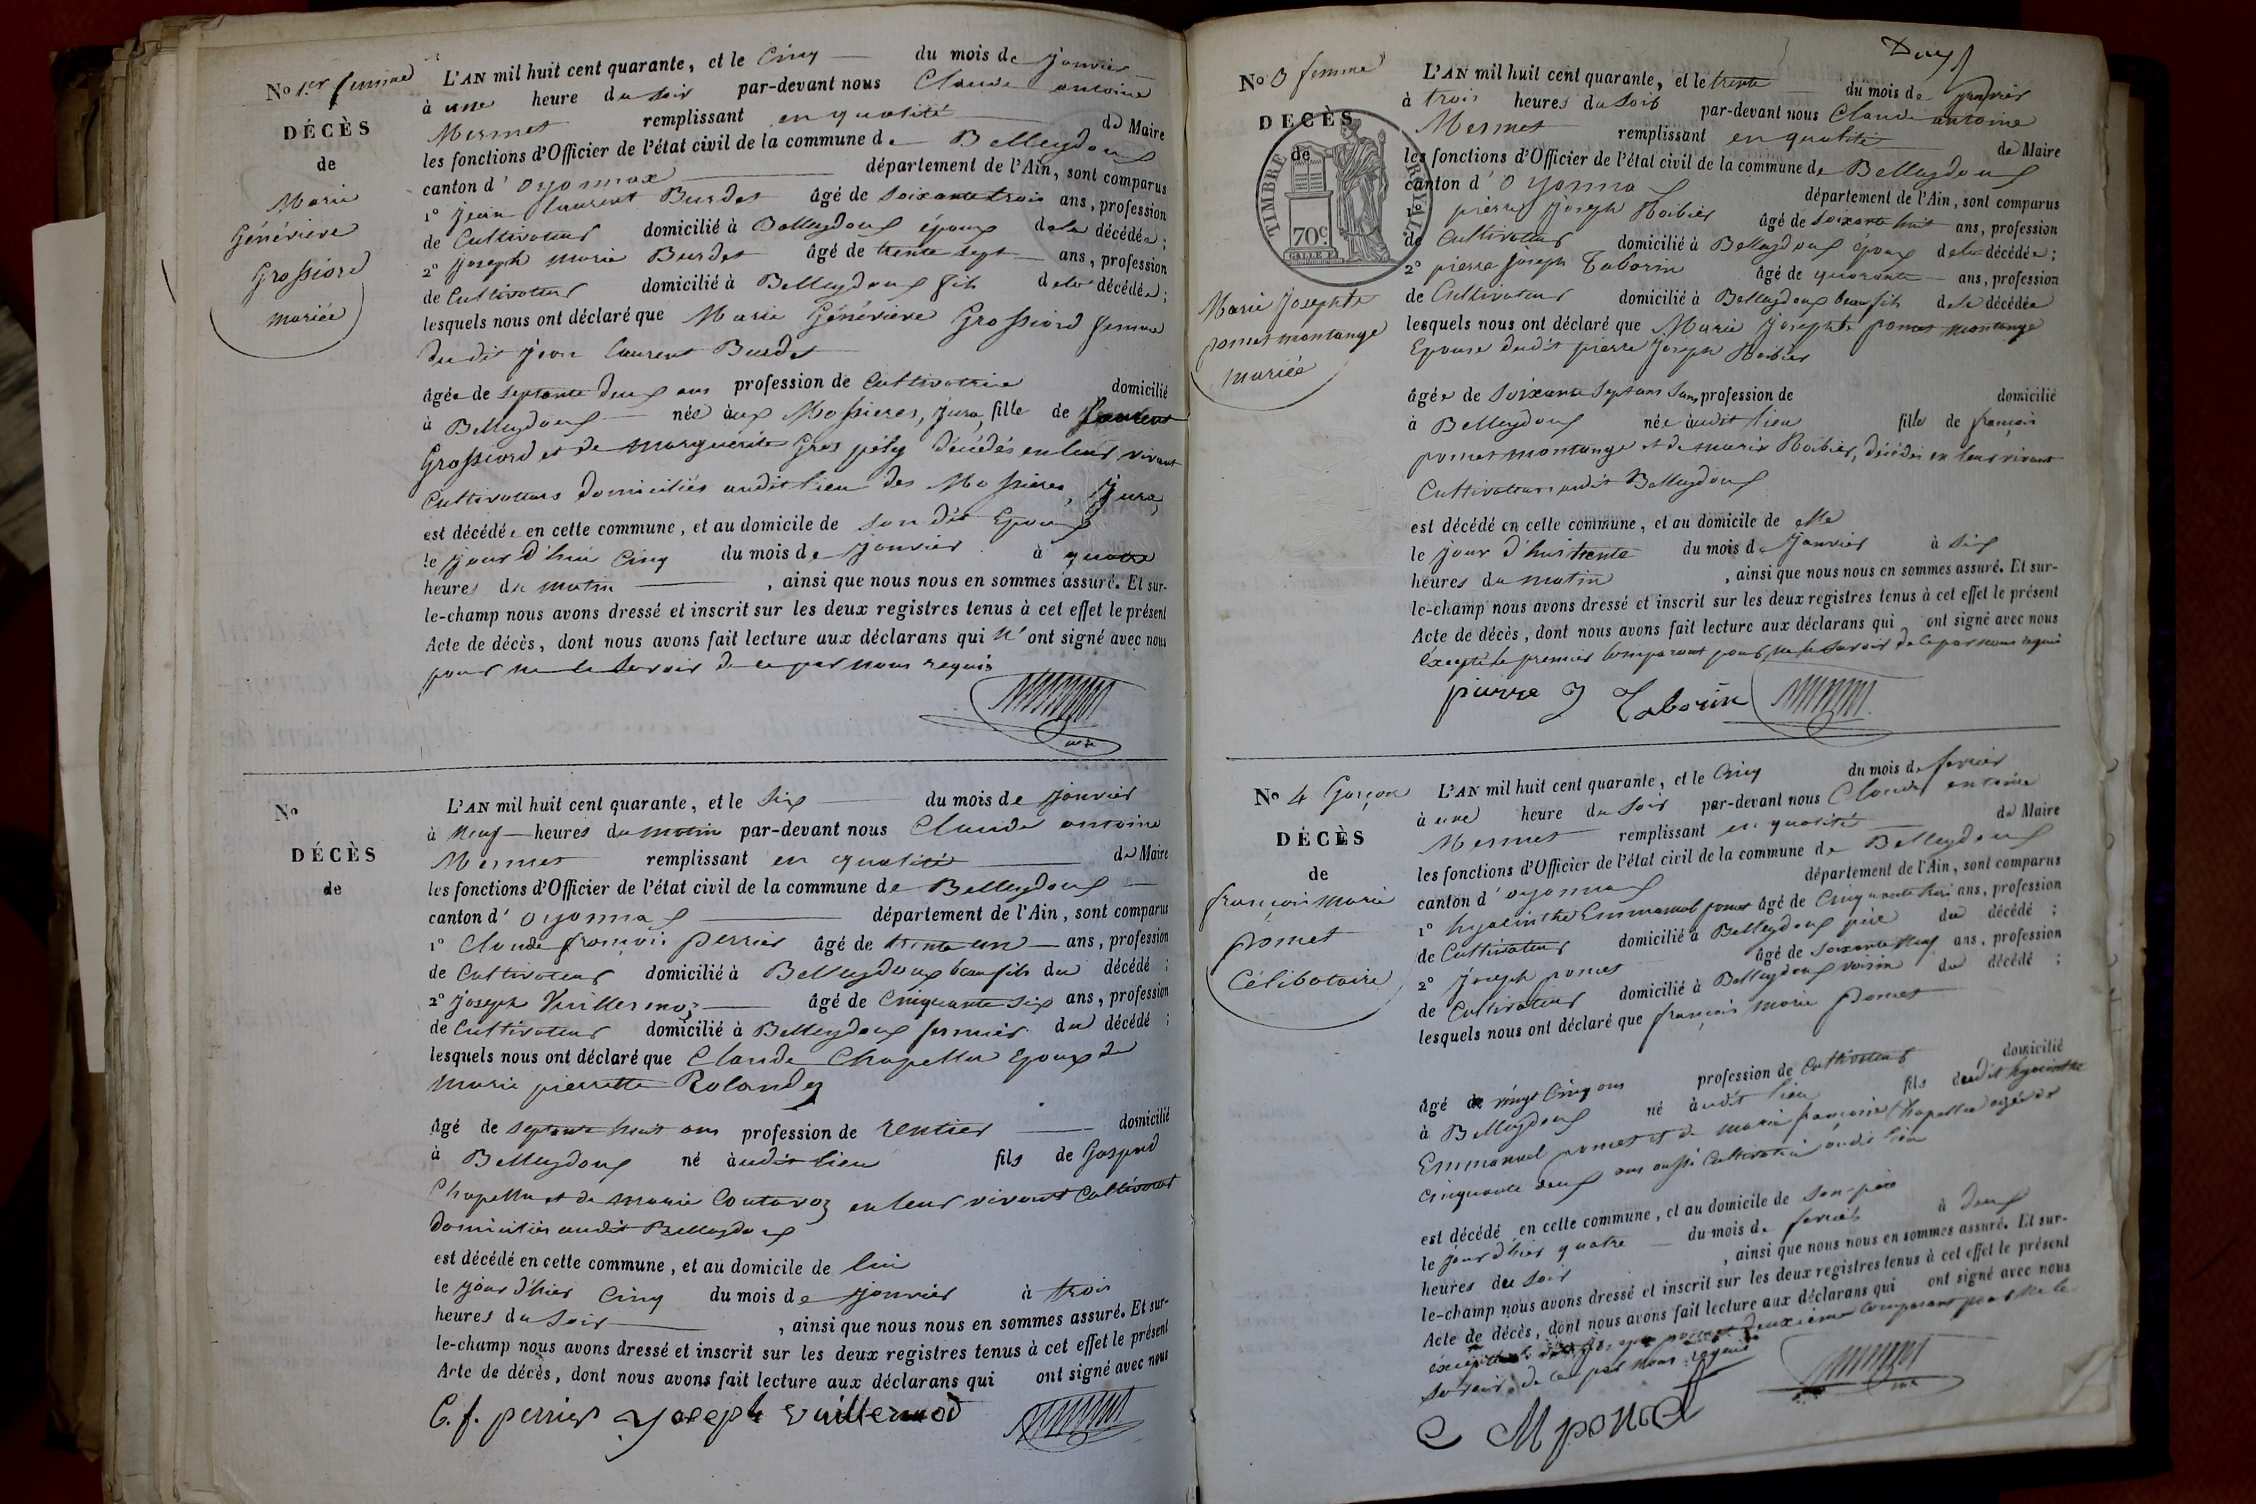 No 1.er femme
DÉCÈS
de
Marie
Généviève
Grossiord
mariée
L'AN mil huit cent quarante, et le Cinq du mois de Janvier
à une heure du soir par-devant nous Claude antoine
Mermet remplissant en qualité de Maire
les fonctions d'Officier de l'état civil de la commune de Belleydoux
canton d'oyonnax département de l'Ain, sont comparus
1° Jean Laurent Burdet âgé de soixante trois ans, profession
de Cultivateur domicilié à Belleydoux époux de la décédée ;
2° Joseph Marie Burdet âgé de trente sept ans, profession
de Cultivateur domicilié à Belleydoux fils de la décédée ;
lesquels nous ont déclaré que Marie Généviève Grossiord femme
dudit Jean Laurent Burdet
âgée de septante deux ans profession de Cultivatrice domicilié
à Belleydoux née aux Mossieres, Jura, fille de Laurent
Grossiord et de Marguerite Gros décédés en leur vivant
Cultivateurs domiciliés audit lieu des Mossieres, Jura,
est décédée en cette commune, et au domicile de son dit Epoux
le jour d'hui Cinq du mois de Janvier à quatre
heures du matin, ainsi que nous nous en sommes assuré. Et sur-
le-champ nous avons dressé et inscrit sur les deux registres tenus à cet effet le présent
Acte de décès, dont nous avons fait lecture aux déclarans qui n'ont signé avec nous
pour ne le savoir de ce par nous requis
No
DÉCÈS
de
L'AN mil huit cent quarante, et le Six du mois de Janvier
à Neuf heures du matin par-devant nous Claude antoine
Mermet remplissant en qualité de Maire
les fonctions d'Officier de l'état civil de la commune de Belleydoux
canton d'oyonnax département de l'Ain, sont comparus
1° Claude françois perrier âgé de trente un ans, profession
de Cultivateur domicilié à Belleydoux beau fils du décédé ;
2° Joseph Vuillermoz âgé de Cinquante six ans, profession
de Cultivateur domicilié à Belleydoux fermier du décédé ;
lesquels nous ont déclaré que Claude Chapellu Epoux de
Marie pierrette Rolandez
âgé de septante huit ans profession de rentier domicilié
à Belleydoux né audit lieu fils de Gaspard
Chapellu et de Marie Coutavoz en leur vivant Cultivat
domiciliés audit Belleydoux
est décédé en cette commune, et au domicile de lui
le jour d'hier Cinq du mois de Janvier à trois
heures du soir, ainsi que nous nous en sommes assuré. Et sur-
le-champ nous avons dressé et inscrit sur les deux registres tenus à cet effet le présent
Acte de décès, dont nous avons fait lecture aux déclarans qui ont signé avec nous
C. f. perrier Joseph vuillermod
No 3 femme
DÉCÈS
de
TIMBRE ROYAL
70c.
Marie Josephte
pomet montange
mariée
L'AN mil huit cent quarante, et le trente du mois de janvier
à trois heures du soir par-devant nous Claude antoine
Mermet remplissant en qualité de Maire
les fonctions d'Officier de l'état civil de la commune de Belleydoux
canton d'Oyonnax département de l'Ain, sont comparus
1° pierre Joseph Robier âgé de soixante huit ans, profession
de Cultivateur domicilié à Belleydoux époux de la décédée ;
2° pierre joseph Taborin âgé de quarante ans, profession
de Cultivateur domicilié à Belleydoux beau fils de la décédée
lesquels nous ont déclaré que Marie Josephte pomet montange
Epouse dudit pierre Joseph Robier
âgée de Soixante Sept ans Sans profession de domicilié
à Belleydoux née audit lieu fille de françois
pomet montange et de Marie Robier, décédés en leur vivant
Cultivateurs audit Belleydoux
est décédé en cette commune, et au domicile de elle
le jour d'hui trente du mois de Janvier à Six
heures du matin, ainsi que nous nous en sommes assuré. Et sur-
le-champ nous avons dressé et inscrit sur les deux registres tenus à cet effet le présent
Acte de décès, dont nous avons fait lecture aux déclarans qui ont signé avec nous
Excepté le premier Comparant pour ne le savoir de ce par nous requis
pierre J Taborin
No 4 Garçon
DÉCÈS
de
françois Marie
pomet
Célibataire
L'AN mil huit cent quarante, et le Cinq du mois de fevrier
à une heure du soir par-devant nous Claude antoine
Mermet remplissant en qualité de Maire
les fonctions d'Officier de l'état civil de la commune de Belleydoux
canton d'oyonnax département de l'Ain, sont comparus
1° hyacinthe Emmanuel pomet âgé de Cinquante trois ans, profession
de Cultivateur domicilié à Belleydoux père du décédé ;
2° Joseph pomet âgé de soixante neuf ans, profession
de Cultivateur domicilié à Belleydoux voisin du décédé ;
lesquels nous ont déclaré que françois Marie pomet
âgé de vingt Cinq ans profession de Cultivateur domicilié
à Belleydoux né audit lieu fils dudit hyacinthe
Emmanuel pomet et de Marie françoise Chapellu agée de
Cinquante deux ans aussi Cultivatrice audit lieu
est décédé en cette commune, et au domicile de son père
le jour d'hier quatre du mois de fevrier à deux
heures du soir, ainsi que nous nous en sommes assuré. Et sur-
le-champ nous avons dressé et inscrit sur les deux registres tenus à cet effet le présent
Acte de décès, dont nous avons fait lecture aux déclarans qui ont signé avec nous
deuxième comparant pour ne le
savoir de ce par nous requis